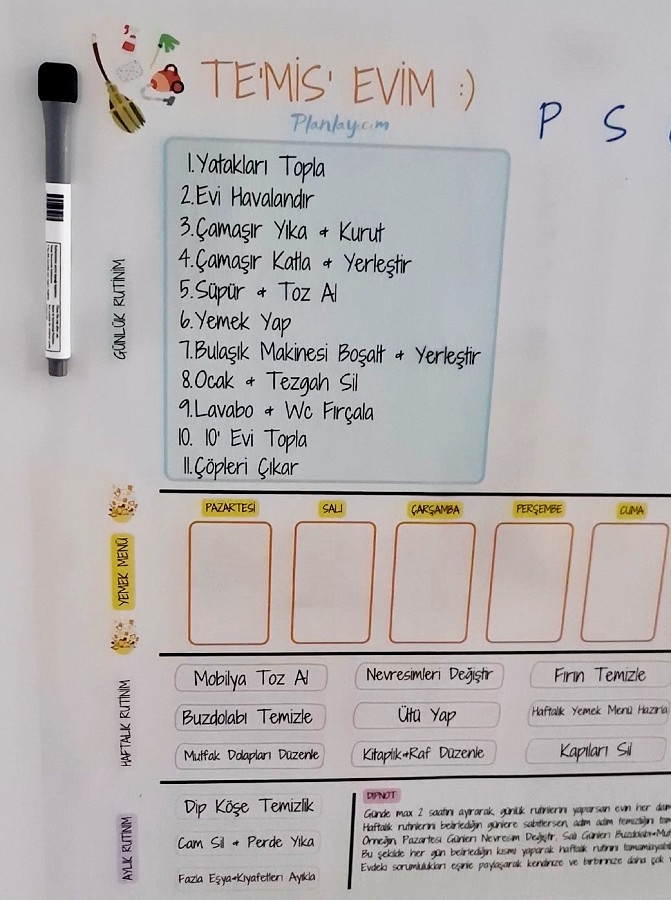 TE'MİS' EVİM :)
Planlay.com
P S
GÜNLÜK RUTİNİM
1.Yatakları Topla
2.Evi Havalandır
3.Çamaşır Yıka + Kurut
4.Çamaşır Katla + Yerleştir
5.Süpür + Toz Al
6.Yemek Yap
7.Bulaşık Makinesi Boşalt + Yerleştir
8.Ocak + Tezgah Sil
9.Lavabo + Wc Fırçala
10. 10' Evi Topla
11.Çöpleri Çıkar
PAZARTESİ SALI ÇARŞAMBA PERŞEMBE CUMA
YEMEK MENÜ
HAFTALIK RUTİNİM
Mobilya Toz Al Nevresimleri Değiştir Fırın Temizle
Buzdolabı Temizle Ütü Yap Haftalık Yemek Menü Hazırla
Mutfak Dolapları Düzenle Kitaplık+Raf Düzenle Kapıları Sil
AYLIK RUTİNİM
Dip Köşe Temizlik
Cam Sil + Perde Yıka
Fazla Eşya+Kıyafetleri Ayıkla
DİPNOT
Günde max 2 saatini ayırarak, günlük rutinlerini yaparsan evin her
Haftalık rutinlerini belirlediğin günlere sabitlersen, adım adım temizliğin
Örneğin; Pazartesi Günleri Nevresim Değiştir, Salı Günleri
Bu şekilde her gün belirlediğin kısmı yaparak haftalık rutini
Evdeki sorumlulukları eşinle paylaşarak kendinize ve birbirinize daha çok